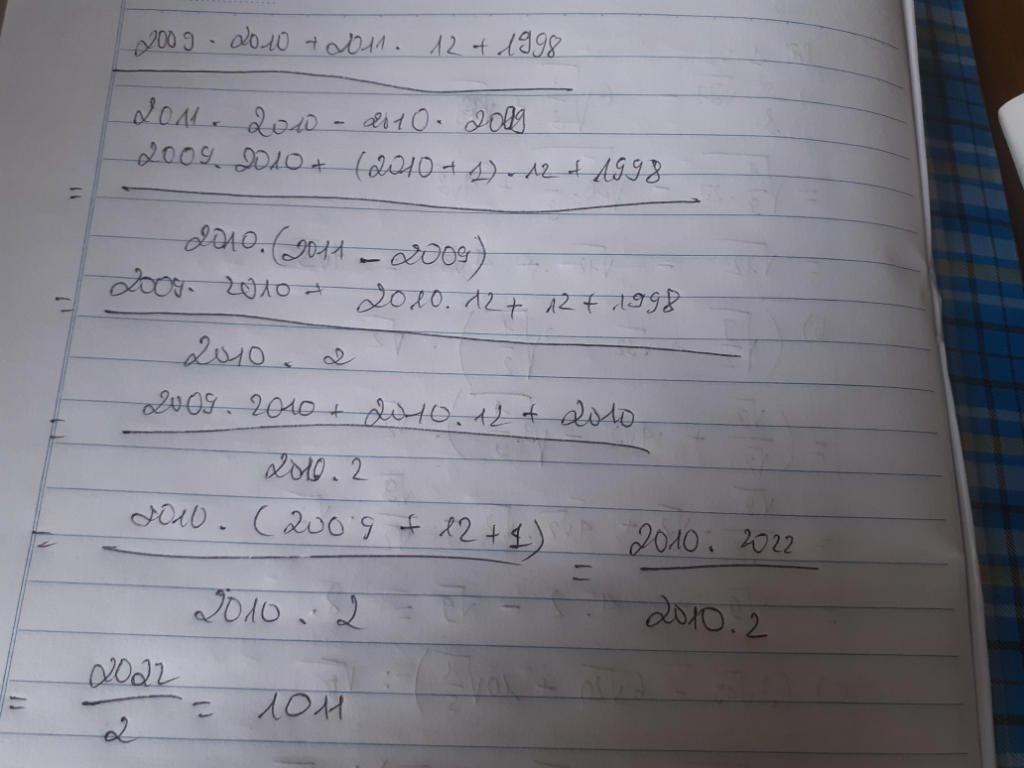 2009 . 2010 + 2011 . 12 + 1998
2011 . 2010 - 2010 . 2009
= 2009 . 2010 + (2010 + 1) . 12 + 1998
2010 . (2011 - 2009)
= 2009 . 2010 + 2010 . 12 + 12 + 1998
2010 . 2
= 2009 . 2010 + 2010 . 12 + 2010
2010 . 2
= 2010 . (2009 + 12 + 1) = 2010 . 2022
2010 . 2 2010 . 2
= 2022 = 1011
2